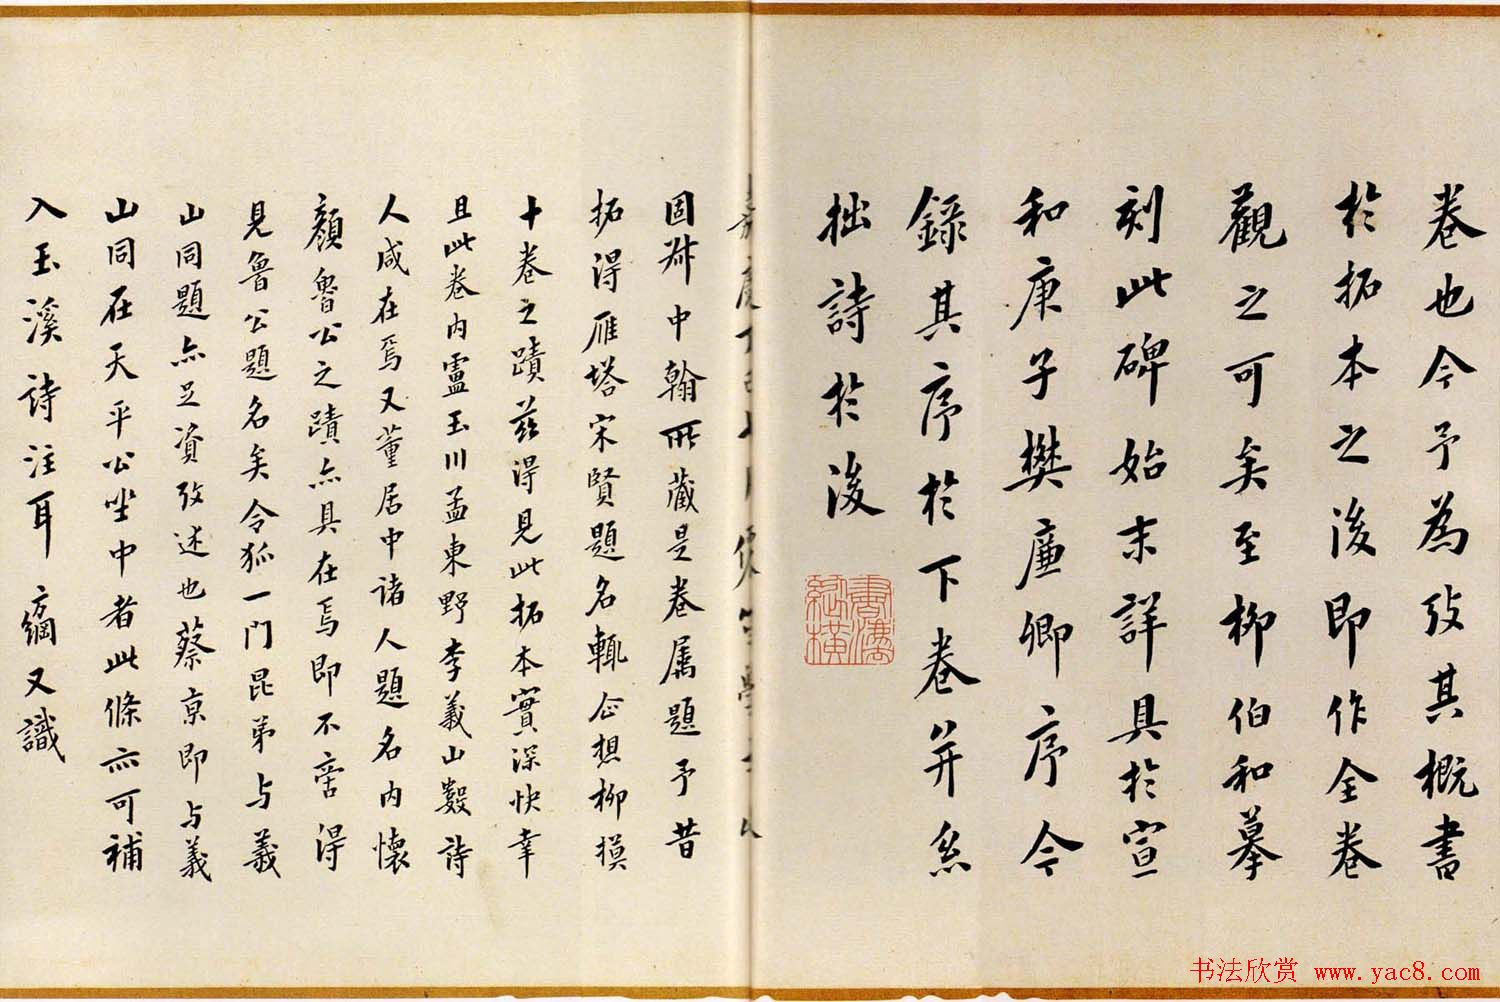 卷也今予為攷其概書
於拓本之後即作全卷
觀之可矣至柳伯和摹
刻此碑始末詳具於宣
和庚子樊廉卿序今
錄其序於下卷并系
拙詩於後
固叔中翰所藏是卷屬題予昔
拓得雁塔宋賢題名輒企想柳摸
十卷之蹟茲得見此拓本實深快幸
且此卷内盧玉川孟東野李義山數詩
人咸在焉又董居中諸人題名内懷
顏魯公之蹟亦具在焉即不啻得
見魯公題名矣令狐一門昆弟与義
山同題亦足資攷述也蔡京即与義
山同在天平公坐中者此條亦可補
入玉溪詩注耳 綱又識
书法欣赏 www.yac8.com